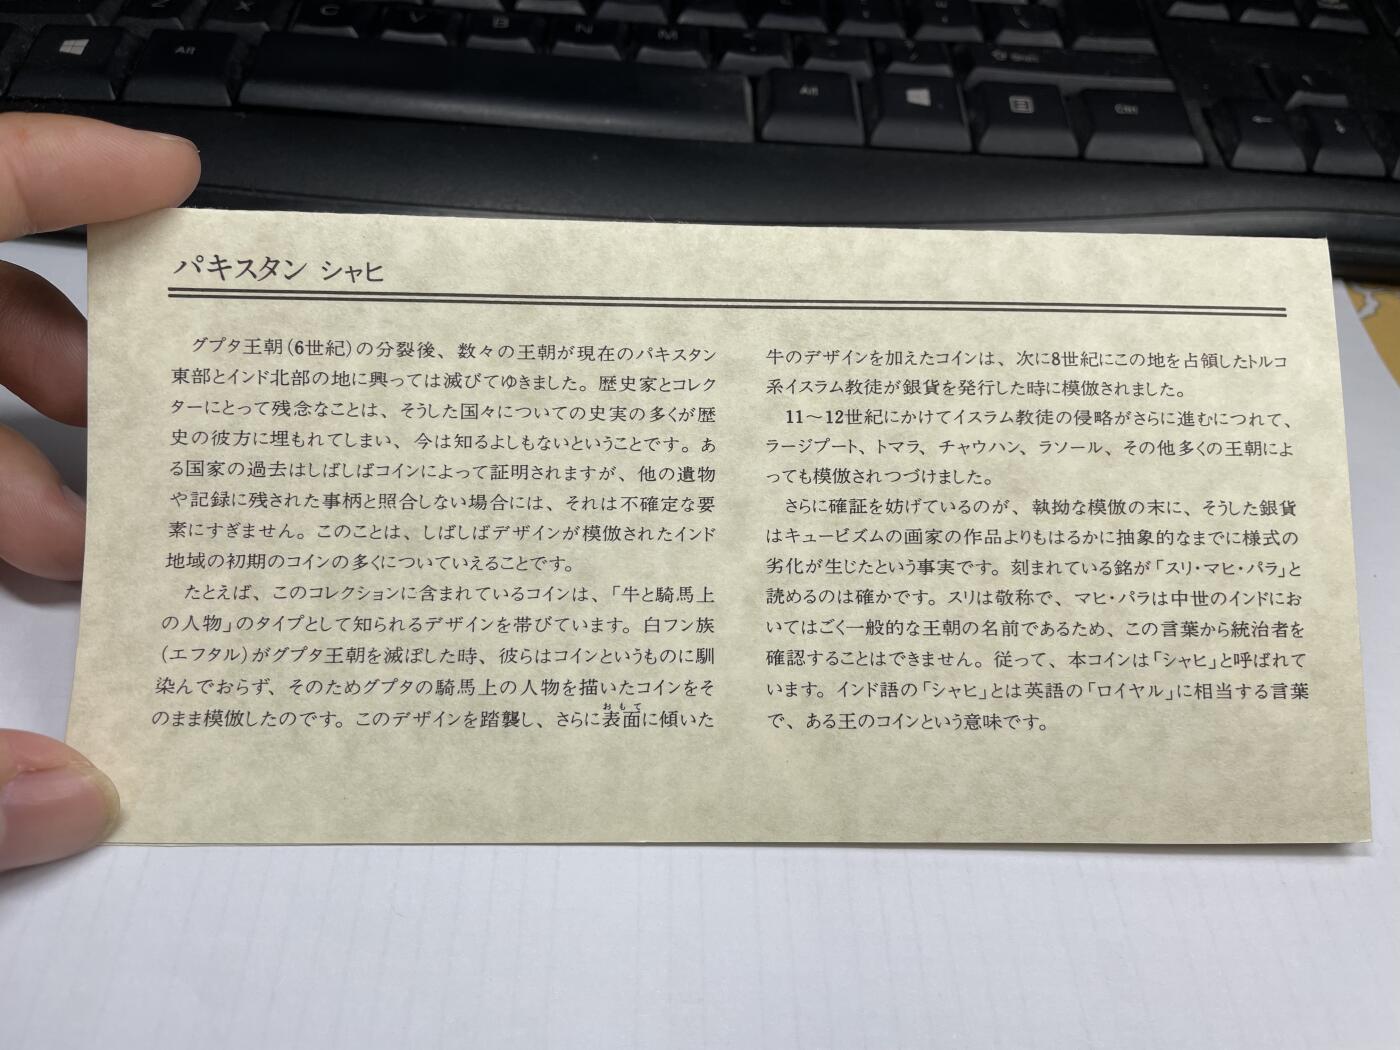 Z
X
C
V
B
N
M
Alt
Alt
Ctrl
パキスタン シャヒ
グプタ王朝(6世紀)の分裂後、数々の王朝が現在のパキスタン
東部とインド北部の地に興っては滅びてゆきました。歴史家とコレク
ターにとって残念なことは、そうした国々についての史実の多くが歴
史の彼方に埋もれてしまい、今は知るよしもないということです。あ
る国家の過去はしばしばコインによって証明されますが、他の遺物
や記録に残された事柄と照合しない場合には、それは不確定な要
素にすぎません。このことは、しばしばデザインが模倣されたインド
地域の初期のコインの多くについていえることです。
たとえば、このコレクションに含まれているコインは、「牛と騎馬上
の人物」のタイプとして知られるデザインを帯びています。白フン族
(エフタル)がグプタ王朝を滅ぼした時、彼らはコインというものに馴
染んでおらず、そのためグプタの騎馬上の人物を描いたコインをそ
おもて
のまま模倣したのです。このデザインを踏襲し、さらに表面に傾いた
牛のデザインを加えたコインは、次に8世紀にこの地を占領したトルコ
系イスラム教徒が銀貨を発行した時に模倣されました。
11〜12世紀にかけてイスラム教徒の侵略がさらに進むにつれて、
ラージプート、トマラ、チャウハン、ラソール、その他多くの王朝によ
っても模倣されつづけました。
さらに確証を妨げているのが、執拗な模倣の末に、そうした銀貨
はキュービズムの画家の作品よりもはるかに抽象的なまでに様式の
劣化が生じたという事実です。刻まれている銘が「スリ・マヒ・パラ」と
読めるのは確かです。スリは敬称で、マヒ・パラは中世のインドにお
いてはごく一般的な王朝の名前であるため、この言葉から統治者を
確認することはできません。従って、本コインは「シャヒ」と呼ばれて
います。インド語の「シャヒ」とは英語の「ロイヤル」に相当する言葉
で、ある王のコインという意味です。